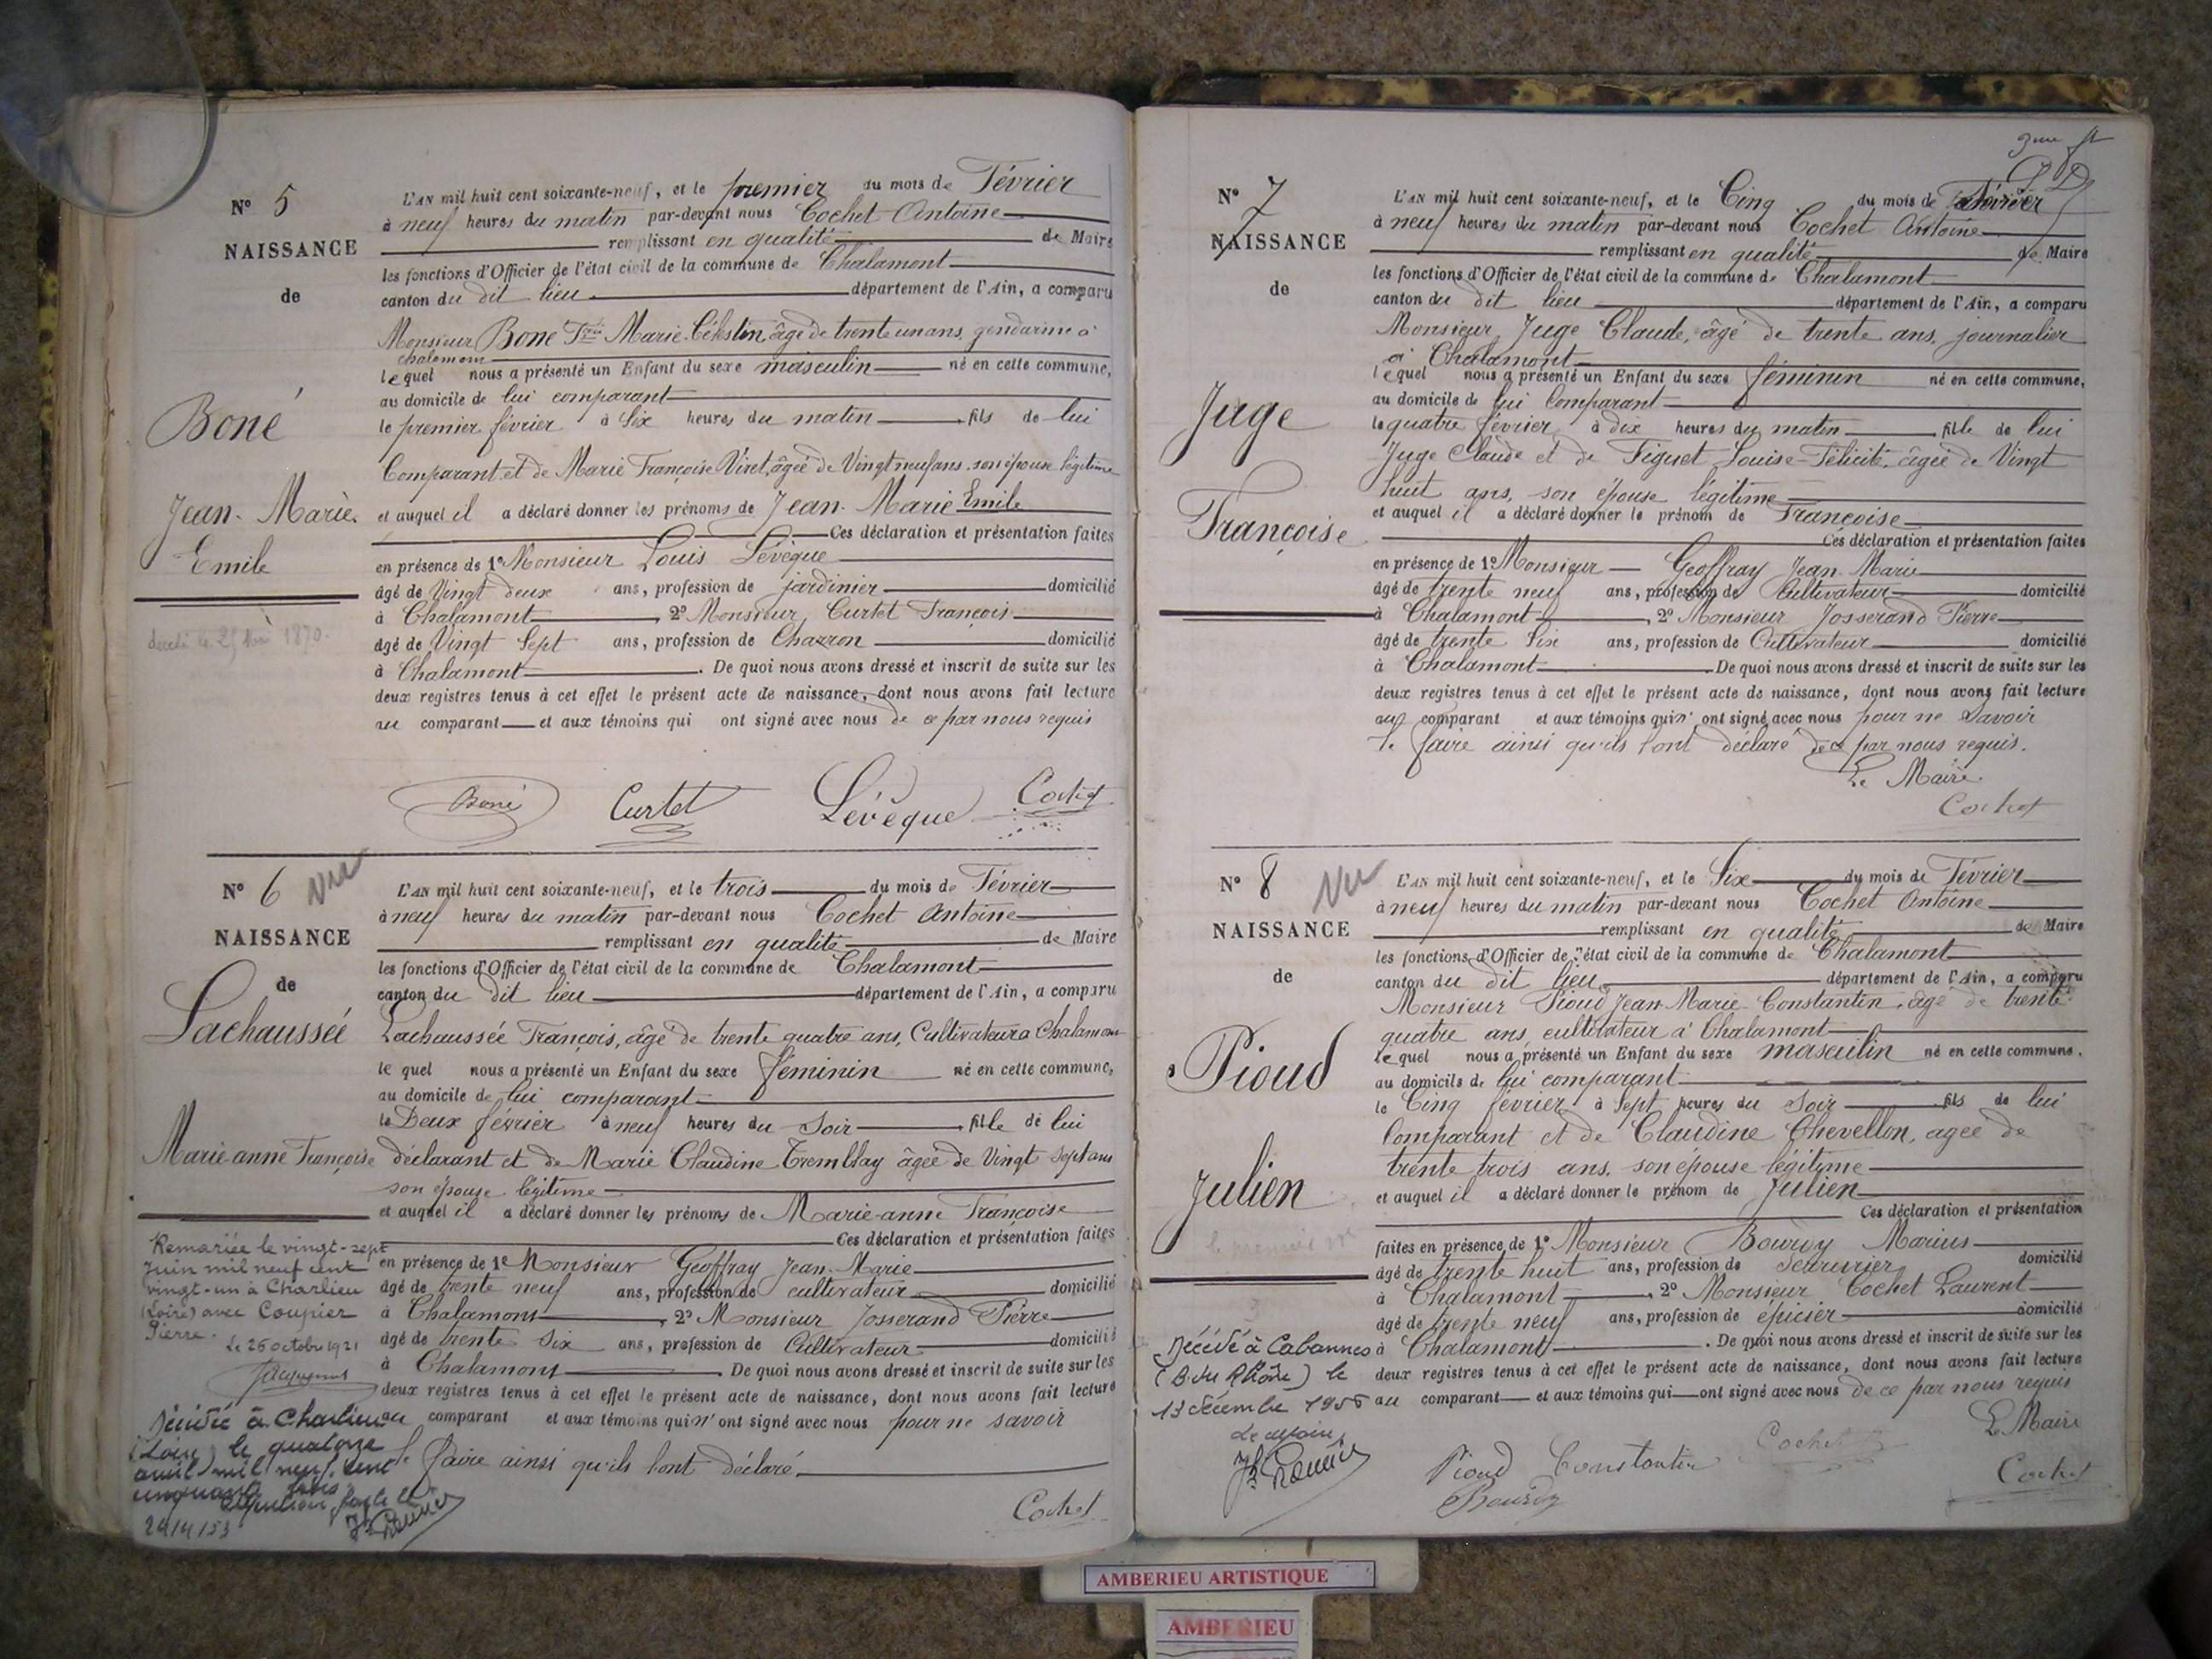 N° 5
NAISSANCE
de
Boné
Jean-Marie
Emile
décédé le 25 1870.
L'AN mil huit cent soixante-neuf, et le premier du mois de Février
à neuf heures du matin par-devant nous Cochet Antoine
remplissant en qualité de Maire
les fonctions d'Officier de l'état civil de la commune de Chalamont
canton du dit lieu département de l'Ain, a comparu
Monsieur Boné Marie Célestin, âgé de trente un ans, gendarme à
Chalamont
lequel nous a présenté un Enfant du sexe masculin né en cette commune,
au domicile de lui comparant
le premier février à six heures du matin fils de lui
Comparant et de Marie Françoise Viret, âgée de Vingt neuf ans, son épouse légitime
et auquel il a déclaré donner les prénoms de Jean-Marie Emile
Ces déclaration et présentation faites
en présence de 1° Monsieur Louis Lévêque
âgé de Vingt deux ans, profession de jardinier domicilié
à Chalamont, 2° Monsieur Curtet François
âgé de Vingt Sept ans, profession de Charron domicilié
à Chalamont. De quoi nous avons dressé et inscrit de suite sur les
deux registres tenus à cet effet le présent acte de naissance, dont nous avons fait lecture
au comparant et aux témoins qui ont signé avec nous de ce par nous requis
Boné Curtet Lévêque Cochet
N° 6 Vu
NAISSANCE
de
Lachaussée
Marie-anne Françoise
Remariée le vingt-sept
juin mil neuf cent
vingt-un à Charlieu
(Loire) avec Coupier
Pierre.
Le 26 octobre 1921
Décédée à Charlieu
(Loire) le quatorze
avril mil neuf cent
cinquante trois
24/4/53
L'AN mil huit cent soixante-neuf, et le trois du mois de Février
à neuf heures du matin par-devant nous Cochet Antoine
remplissant en qualité de Maire
les fonctions d'Officier de l'état civil de la commune de Chalamont
canton du dit lieu département de l'Ain, a comparu
Lachaussée François, âgé de trente quatre ans, Cultivateur a Chalamont
lequel nous a présenté un Enfant du sexe féminin né en cette commune,
au domicile de lui comparant
le Deux février à neuf heures du soir fille de lui
déclarant et de Marie Claudine Tremblay âgée de Vingt sept ans
son épouse légitime
et auquel il a déclaré donner les prénoms de Marie-anne Françoise
Ces déclaration et présentation faites
en présence de 1° Monsieur Geoffray Jean-Marie
âgé de trente neuf ans, profession de cultivateur domicilié
à Chalamont, 2° Monsieur Josserand Pierre
âgé de trente six ans, profession de Cultivateur domicilié
à Chalamont. De quoi nous avons dressé et inscrit de suite sur les
deux registres tenus à cet effet le présent acte de naissance, dont nous avons fait lecture
au comparant et aux témoins qui n'ont signé avec nous pour ne savoir
le faire ainsi qu'ils l'ont déclaré
Cochet
N° 7
NAISSANCE
de
Juge
Françoise
L'AN mil huit cent soixante-neuf, et le Cinq du mois de Février
à neuf heures du matin par-devant nous Cochet Antoine
remplissant en qualité de Maire
les fonctions d'Officier de l'état civil de la commune de Chalamont
canton du dit lieu département de l'Ain, a comparu
Monsieur Juge Claude, âgé de trente ans, journalier
à Chalamont
lequel nous a présenté un Enfant du sexe féminin né en cette commune,
au domicile de lui Comparant
le quatre février à dix heures du matin, fille de lui
Juge Claude et de Figuet Louise-Félicité, âgée de Vingt
huit ans, son épouse légitime
et auquel il a déclaré donner le prénom de Françoise
Ces déclaration et présentation faites
en présence de 1° Monsieur Geoffray Jean-Marie
âgé de trente neuf ans, profession de Cultivateur domicilié
à Chalamont, 2° Monsieur Josserand Pierre
âgé de trente six ans, profession de Cultivateur domicilié
à Chalamont. De quoi nous avons dressé et inscrit de suite sur les
deux registres tenus à cet effet le présent acte de naissance, dont nous avons fait lecture
au comparant et aux témoins qui n'ont signé avec nous pour ne savoir
le faire ainsi qu'ils l'ont déclaré de ce par nous requis.
Le Maire
Cochet
N° 8 Vu
NAISSANCE
de
Pioud
Julien
Décédé à Cabannes
(B. du Rhône) le
13 décembre 1955
Le Maire,
L'AN mil huit cent soixante-neuf, et le Six du mois de Février
à neuf heures du matin par-devant nous Cochet Antoine
remplissant en qualité de Maire
les fonctions d'Officier de l'état civil de la commune de Chalamont
canton du dit lieu département de l'Ain, a comparu
Monsieur Pioud Jean-Marie Constantin, âgé de trente
quatre ans, cultivateur à Chalamont
lequel nous a présenté un Enfant du sexe masculin né en cette commune,
au domicile de lui comparant
le Cinq février à Sept heures du Soir fils de lui
Comparant et de Claudine Chevellon, agée de
trente trois ans, son épouse légitime
et auquel il a déclaré donner le prénom de Julien
Ces déclaration et présentation
faites en présence de 1° Monsieur Bourdy Marius
âgé de trente huit ans, profession de Serrurier domicilié
à Chalamont, 2° Monsieur Cochet Laurent
âgé de trente neuf ans, profession de épicier domicilié
à Chalamont. De quoi nous avons dressé et inscrit de suite sur les
deux registres tenus à cet effet le présent acte de naissance, dont nous avons fait lecture
au comparant et aux témoins qui ont signé avec nous de ce par nous requis
Le Maire
Pioud Constantin Cochet
Bourdy Cochet
AMBERIEU ARTISTIQUE
AMBERIEU